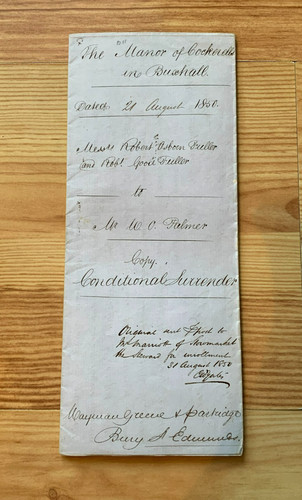 The Manor of Cockerells
in Buxhall.
Dated 21 August 1850.
Messrs Robert Osborn Fuller
and Robt. Goole Fuller
to
Mr W. O. Palmer
Copy
Conditional Surrender
Original sent Post to
Mr Marriott of Stowmarket
the Steward for enrollment
31 August 1850
Wayman Greene &
Bury St Edmunds